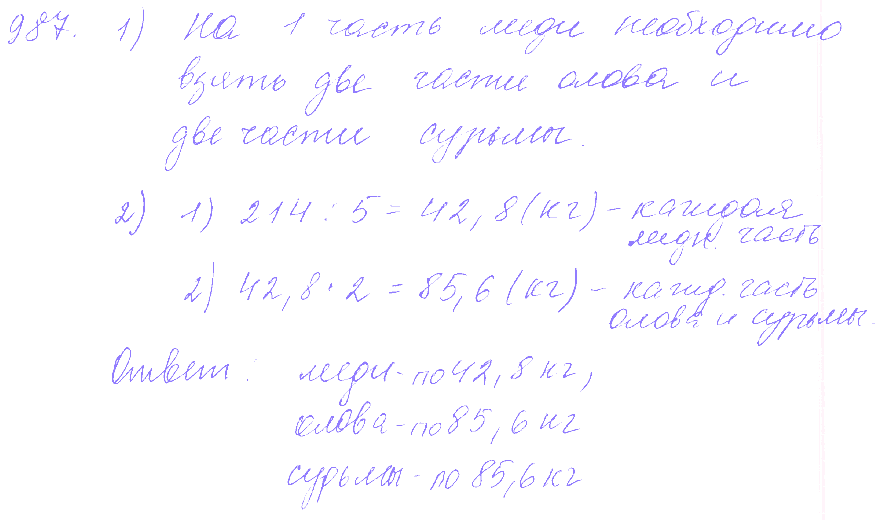 987. 1) На 1 часть меди необходимо
взять две части олова и
две части сурьмы.
2) 1) 214 : 5 = 42,8 (кг) - каждая
медн. часть
2) 42,8 · 2 = 85,6 (кг) - кажд. часть
олова и сурьмы.
Ответ: меди - по 42,8 кг,
олова - по 85,6 кг
сурьмы - по 85,6 кг